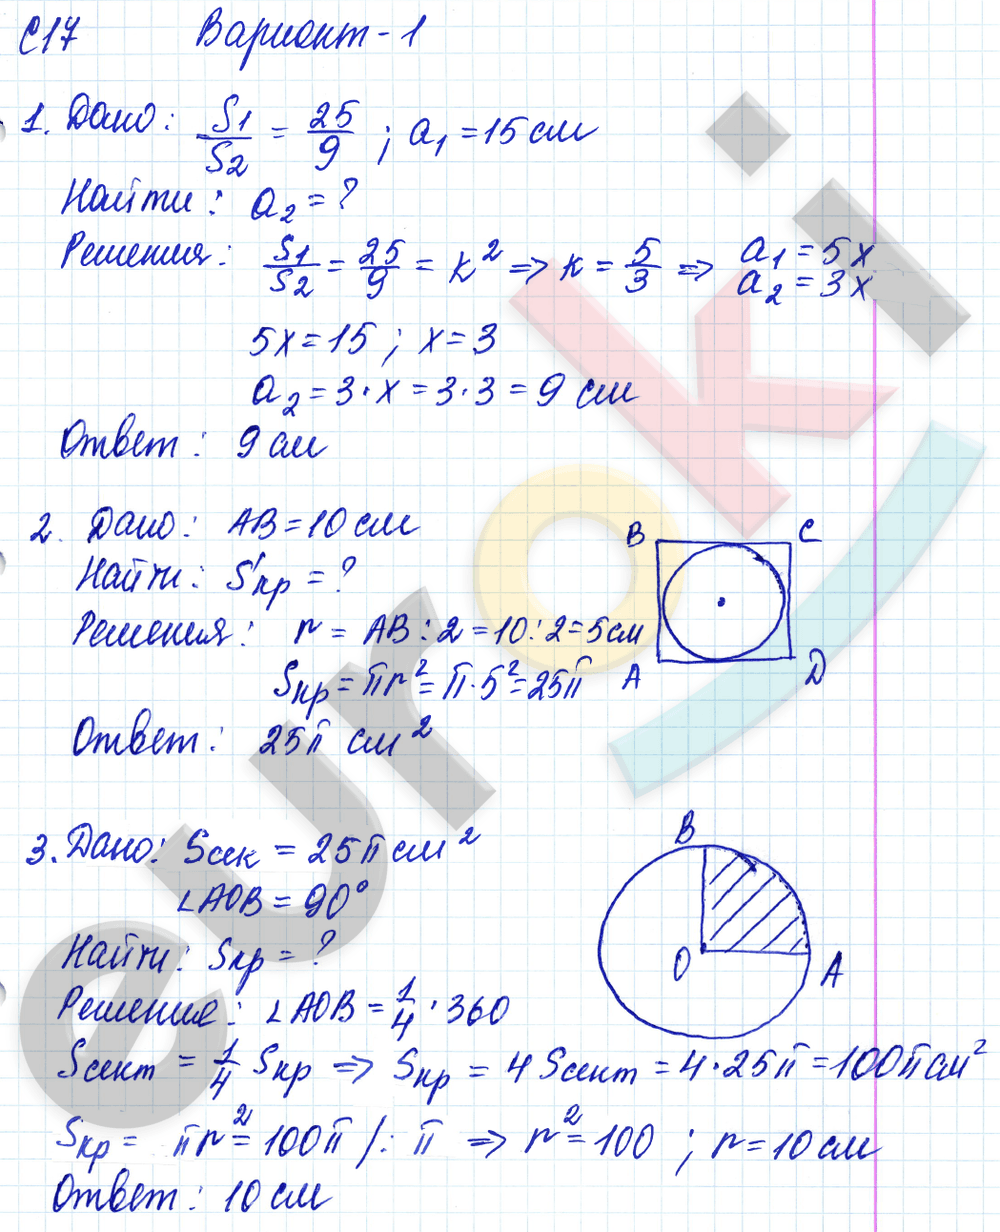 С17 Вариант-1
1. Дано: S1/S2 = 25/9 ; a1 = 15 см
Найти: a2 = ?
Решения: S1/S2 = 25/9 = k² => k = 5/3 => a1 = 5x
a2 = 3x
5x = 15 ; x = 3
a2 = 3·x = 3·3 = 9 см
Ответ: 9 см
2. Дано: AB = 10 см
Найти: Sкр = ?
Решения: r = AB : 2 = 10 : 2 = 5 см
Sкр = πr² = π·5² = 25π
Ответ: 25π см²
B C
A D
3. Дано: Sсек = 25π см²
∠AOB = 90°
Найти: Sкр = ?
Решение: ∠AOB = 1/4 · 360
Sсект = 1/4 Sкр => Sкр = 4 Sсект = 4·25π = 100π см²
Sкр = πr² = 100π /: π => r² = 100 ; r = 10 см
Ответ: 10 см
B
O A
euroki